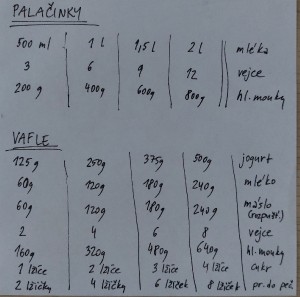 PALAČINKY
500 ml 1 l 1,5 l 2 l mléka
3 6 9 12 vejce
200 g 400g 600g 800g hl. mouky
VAFLE
125g 250g 375g 500g jogurt
60g 120g 180g 240g mléko
60g 120g 180g 240g máslo (rozpušt.)
2 4 6 8 vejce
160g 320g 480g 640g hl. mouky
1 lžíce 2 lžíce 3 lžíce 4 lžíce cukr
2 lžičky 4 lžičky 6 lžiček 8 lžiček pr. do peč.